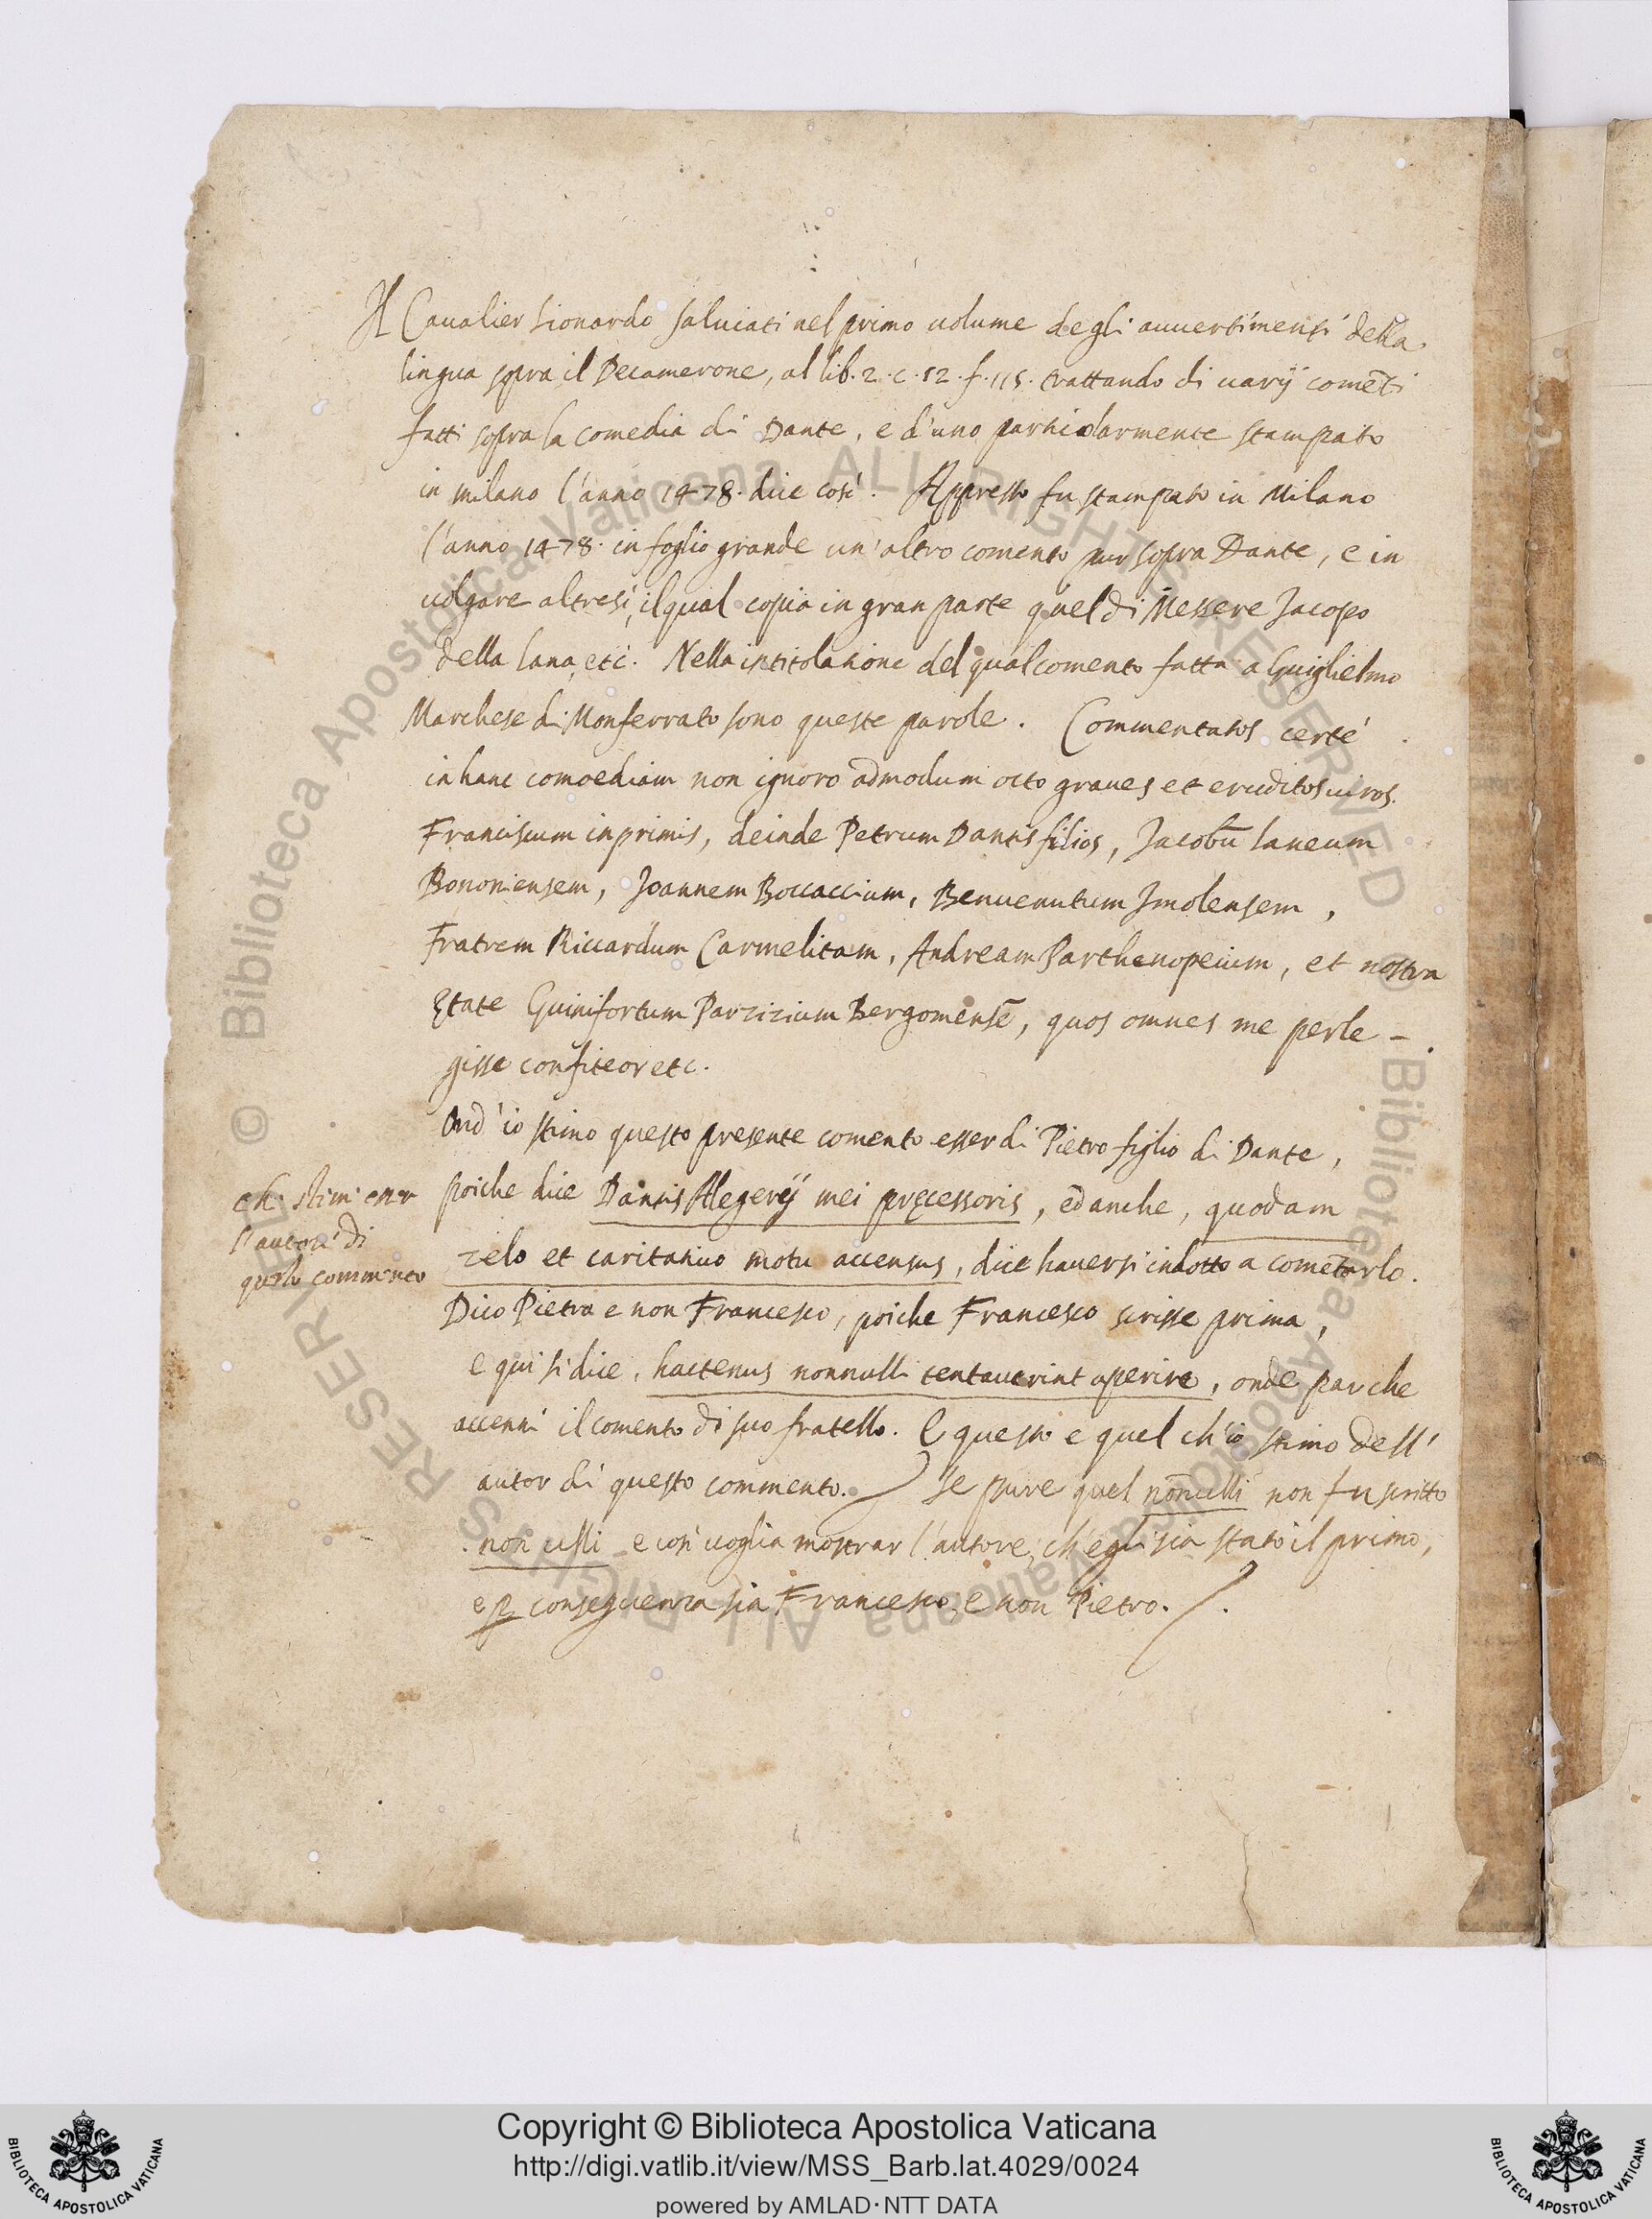 Il Caualier Lionardo Saluiati nel primo uolume degli auuertimenti della
lingua sopra il Decamerone, al lib. 2. c. 12. f. 115. trattando di uarij comẽti
fatti sopra la comedia di Dante, e d'uno particolarmente stampato
in milano l'anno 1478. dice così. Appresso fu stampato in Milano
l'anno 1478. in foglio grande un'altro comento pur sopra Dante, e in
uolgare altresi, il qual copia in gran parte quel di Messere Jacopo
della lana, etc. Nella intitolatione del qual comento fatta a Guiglielmo
Marchese di Monferrato sono queste parole. Commentatos certè
in hanc comoediam non ignoro admodum octo graues et eruditos uiros.
Franciscum inprimis, deinde Petrum Dantis filios, Jacobũ laneum
Bononiensem, Joannem Boccaccium, Benuenutum Jmolensem,
Fratrem Riccardum Carmelitam, Andream Parthenopeium, et nostra
ętate Guinifortum Barzizium Bergomensẽ, quos omnes me perle-
gisse confiteor etc.
Ond'io stimo questo presente comento esser di Pietro figlio di Dante,
chi stimi esser
l'autor di
questo commento
poiche dice Dantis Allegerij mei pręcessoris, ed anche, quodam
zelo et caritatiuo motu accensus, dice hauersi indotto a comẽtarlo.
Dico Pietro e non Francesco, poiche Francesco scrisse prima,
e qui si dice, hactenus nonnulli tentauerint aperire, onde par che
accenni il comento di suo fratello. E questo e quel ch'io stimo dell'
autor di questo commento. Se pure quel nõnulli non fu scritto
non ulli e così uoglia mostrar l'autore, ch'egli sia stato il primo,
e ꝑ conseguenza sia Francesco, e non Pietro.
© Biblioteca Apostolica Vaticana ALL RIGHTS RESERVED
© Biblioteca Apostolica Vaticana ALL RIGHTS RESERVED
Copyright © Biblioteca Apostolica Vaticana
http://digi.vatlib.it/view/MSS_Barb.lat.4029/0024
powered by AMLAD·NTT DATA
BIBLIOTECA APOSTOLICA VATICANA
BIBLIOTECA APOSTOLICA VATICANA